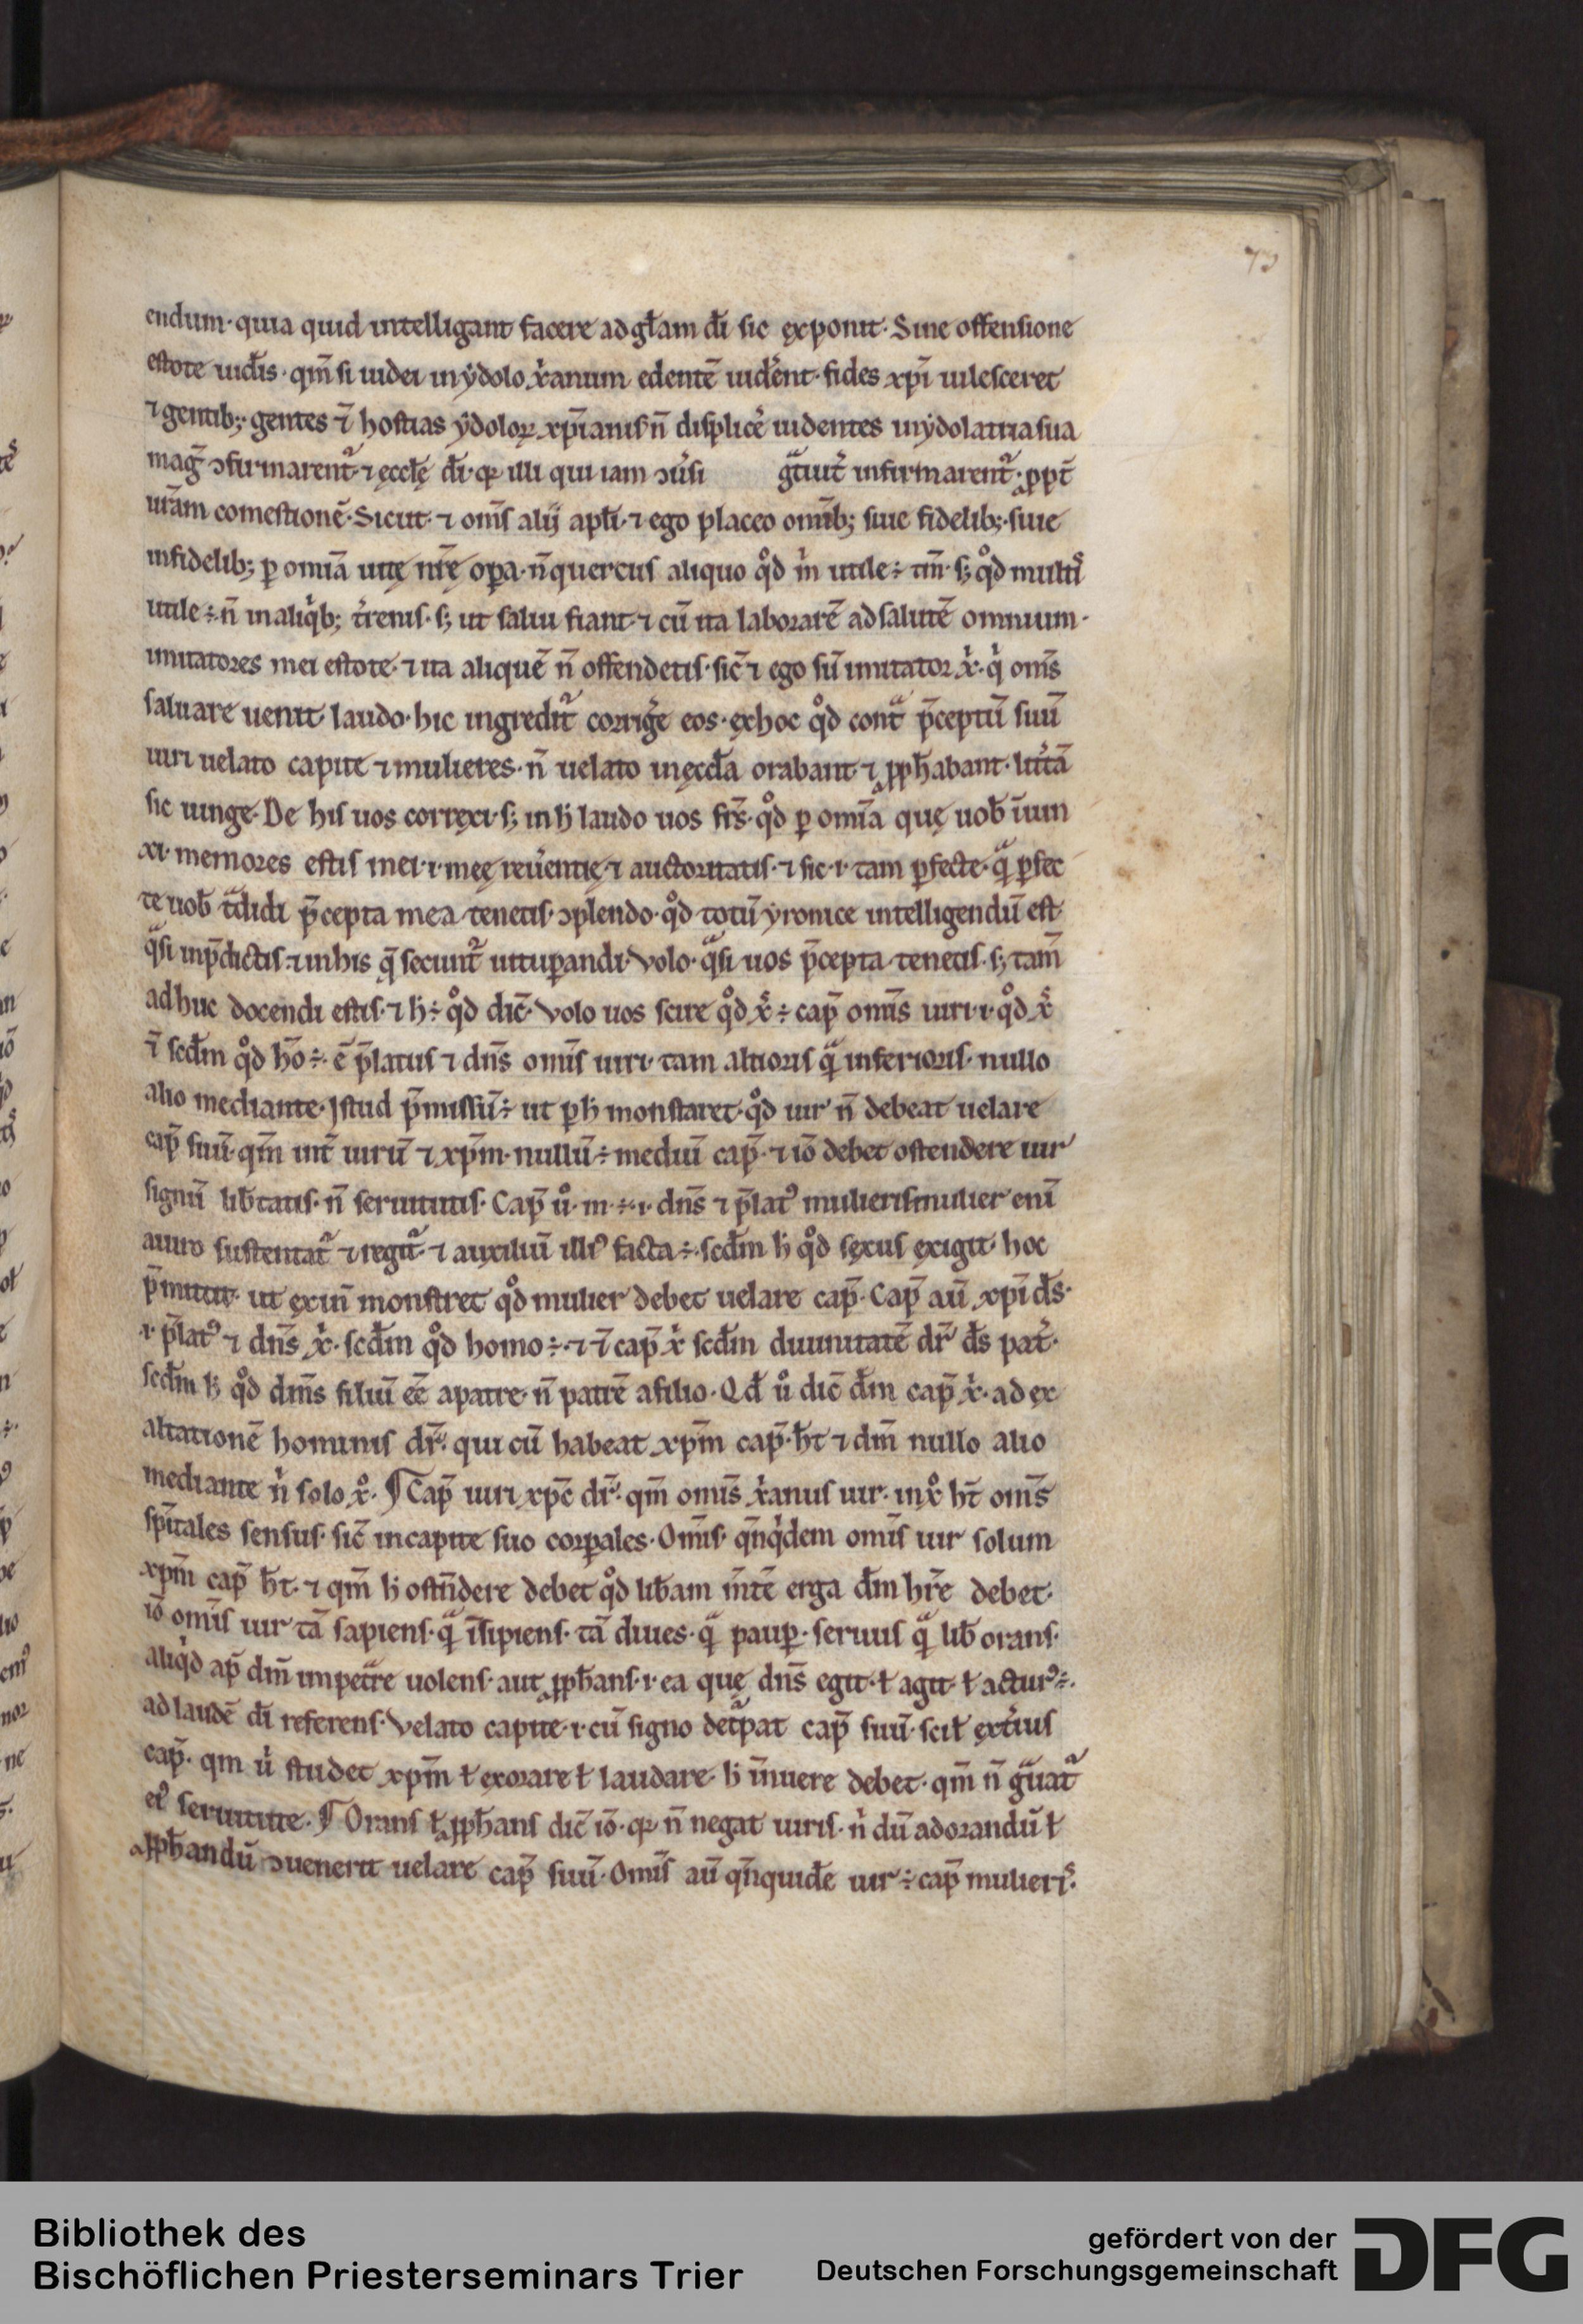 73
endum· quia quid intelligant facere ad gl̄am dī sic exponit· Sine offensione
estote iud̄is· qm̄ si iudei in ẏdolo xͥanum edentē uid̓ent· fides xp̄i uilesceret
⁊ gentib;· gentes ⁊̄ hostias ẏdoloꝝ xp̄ianis n̄ displice᷒ uidentes in ẏdolatria sua
mag̅ ꝯfirmarent᷒ ⁊ ęcclę̄ dī· qꝛ illi qui iam ꝯu̓si gͣuit᷒ infirmarent᷒· ꝓpt̄
ur̄am comestionē· Sicut ⁊ om̄s alij apl̄i· ⁊ ego placeo omīb; siue fidelib;· siue
infidelib; ꝑ omīa uitę nr̄ę oꝑa· n̄ querens aliquo qͦd mͥ utile ÷ tm̄· s; qͦd multiˢ
utile ÷ n̄ in aliqͥb; t᷒renis· s; ut salui fiant· ⁊ cū ita laborarē ad salutē omnium·
imitatores mei estote· ⁊ ita aliquē n̄ offendetis· sic̄ ⁊ ego sū imitator xͥ· qͥ om̄s
saluare uenit· laudo· hic ingredit᷒ corrig᷒e eos· ex hoc qͦd contͣ p̄ceptū suū
uiri uelato capite ⁊ mulieres· n̄ uelato in ęccl̄a orabant ⁊ ꝓph̄abant· litt᷒ā
sic iunge· De his uos correxi· s; in ħ laudo uos fr̄s· qͦd ꝑ omīa quę uob̄ iniun
xi· memores estis mei· i· meę reu̓entię· ⁊ auctoritatis· ⁊ sic· i· tam ꝑfecte· qͣ̄ ꝑfec
te uob̄ tͣdidi p̄cepta mea tenetis· ꝯplendo· qͦd totū ẏronice intelligendū est
qͣsi in p̄dictis ⁊ in his q̄ secunt᷒ uituꝑandi· Volo· qͣsi uos p̄cepta tenetis· s; tam̄
adhuc docendi estis· ⁊ ħ ÷ qͦd dic̄· Volo uos scire qͦd xˢ ÷ cap̄ om̄is uiri· i· qͦd xˢ
⁊̄ scd̄m qͦd hō ÷· ē p̄latus ⁊ dn̄s om̄is uiri· tam altioris qͣ̄ inferioris· nullo
alio mediante· Istud p̄missū ÷ ut ꝑ ħ monstaret· qͦd uir n̄ debeat uelare
cap̄ suū· qm̄ int̄ uirū ⁊ xp̄m· nullū ÷ mediū cap̄· ⁊ iō debet ostendere uir
signū lib̄tatis· n̄ seruitutis· Cap̄ uͦ· m· ÷· i· dn̄s ⁊ p̄latꝰ mulieris mulier enī
a uiro sustentat᷒ ⁊ regit᷒ ⁊ auxiliū illiꝰ facta ÷· scd̄m ħ qͦd sexus exigit· hoc
p̄mittit· ut exin̄ monstret qͦd mulier debet uelare cap̄· Cap̄ aū xp̄i d̄s·
i· p̄latꝰ ⁊ dn̄s xͥ· scd̄m qͦd homo ÷· ⁊ ⁊̄ cap̄ xͥ scd̄m diuinitatē dr̄ d̄s pat᷒·
scd̄m ħ qͦd dīm̄s filiū eē̄ a patre· n̄ patrē a filio· Qd̄ uͦ dic̄ d̄m cap̄ xͥ· ad ex
altationē hominis dr̄· qui cū habeat xp̄m cap̄· h̄t ⁊ dm̄ nullo alio
mediante nͥ solo xͦ· ¶ Cap̄ uiri xp̄c dr̄· qm̄ om̄is xͥanus uir· in xͦ h̄t om̄s
sp̄itales sensus· sic̄ in capite suo corꝑales· Om̄is· qn̄qͥdem om̄is uir solum
xp̄m cap̄ h̄t· ⁊ qm̄ ħ ostn̄dere debet qͦd lib̄am m̄tē erga d̄m hr̄e debet·
iō om̄is uir tā sapiens· qͣ̄ īsipiens· tā diues· qͣ̄ pauꝑ· seruus qͣ̄ lib̄ orans·
aliqͥd ap̄ dm̄ impetͣre uolens· aut ꝓph̄ans· i· ea quę dn̄s egit· ł agit· ł acturꝰ ÷·
ad laudē dī referens· Velato capite· i· cū signo detͣpat cap̄ suū· scil̄ ext᷒ius
cap̄· qm uͥ studet xp̄m ł exorare ł laudare· ħ īnuere debet· qm̄ n̄ gͣuat᷒
eiꝰ seruitute· ¶ Orans ł ꝓph̄ans dic̄ iō· qꝛ n̄ negat uiris· nͥ dū ad orandū ł
ꝓph̄andū ꝯuenerit uelare cap̄ suū· Om̄is aū qn̄quidē uir ÷ cap̄ mulieriˢ·
Bibliothek des
Bischöflichen Priesterseminars Trier
gefördert von der
Deutschen Forschungsgemeinschaft
DFG